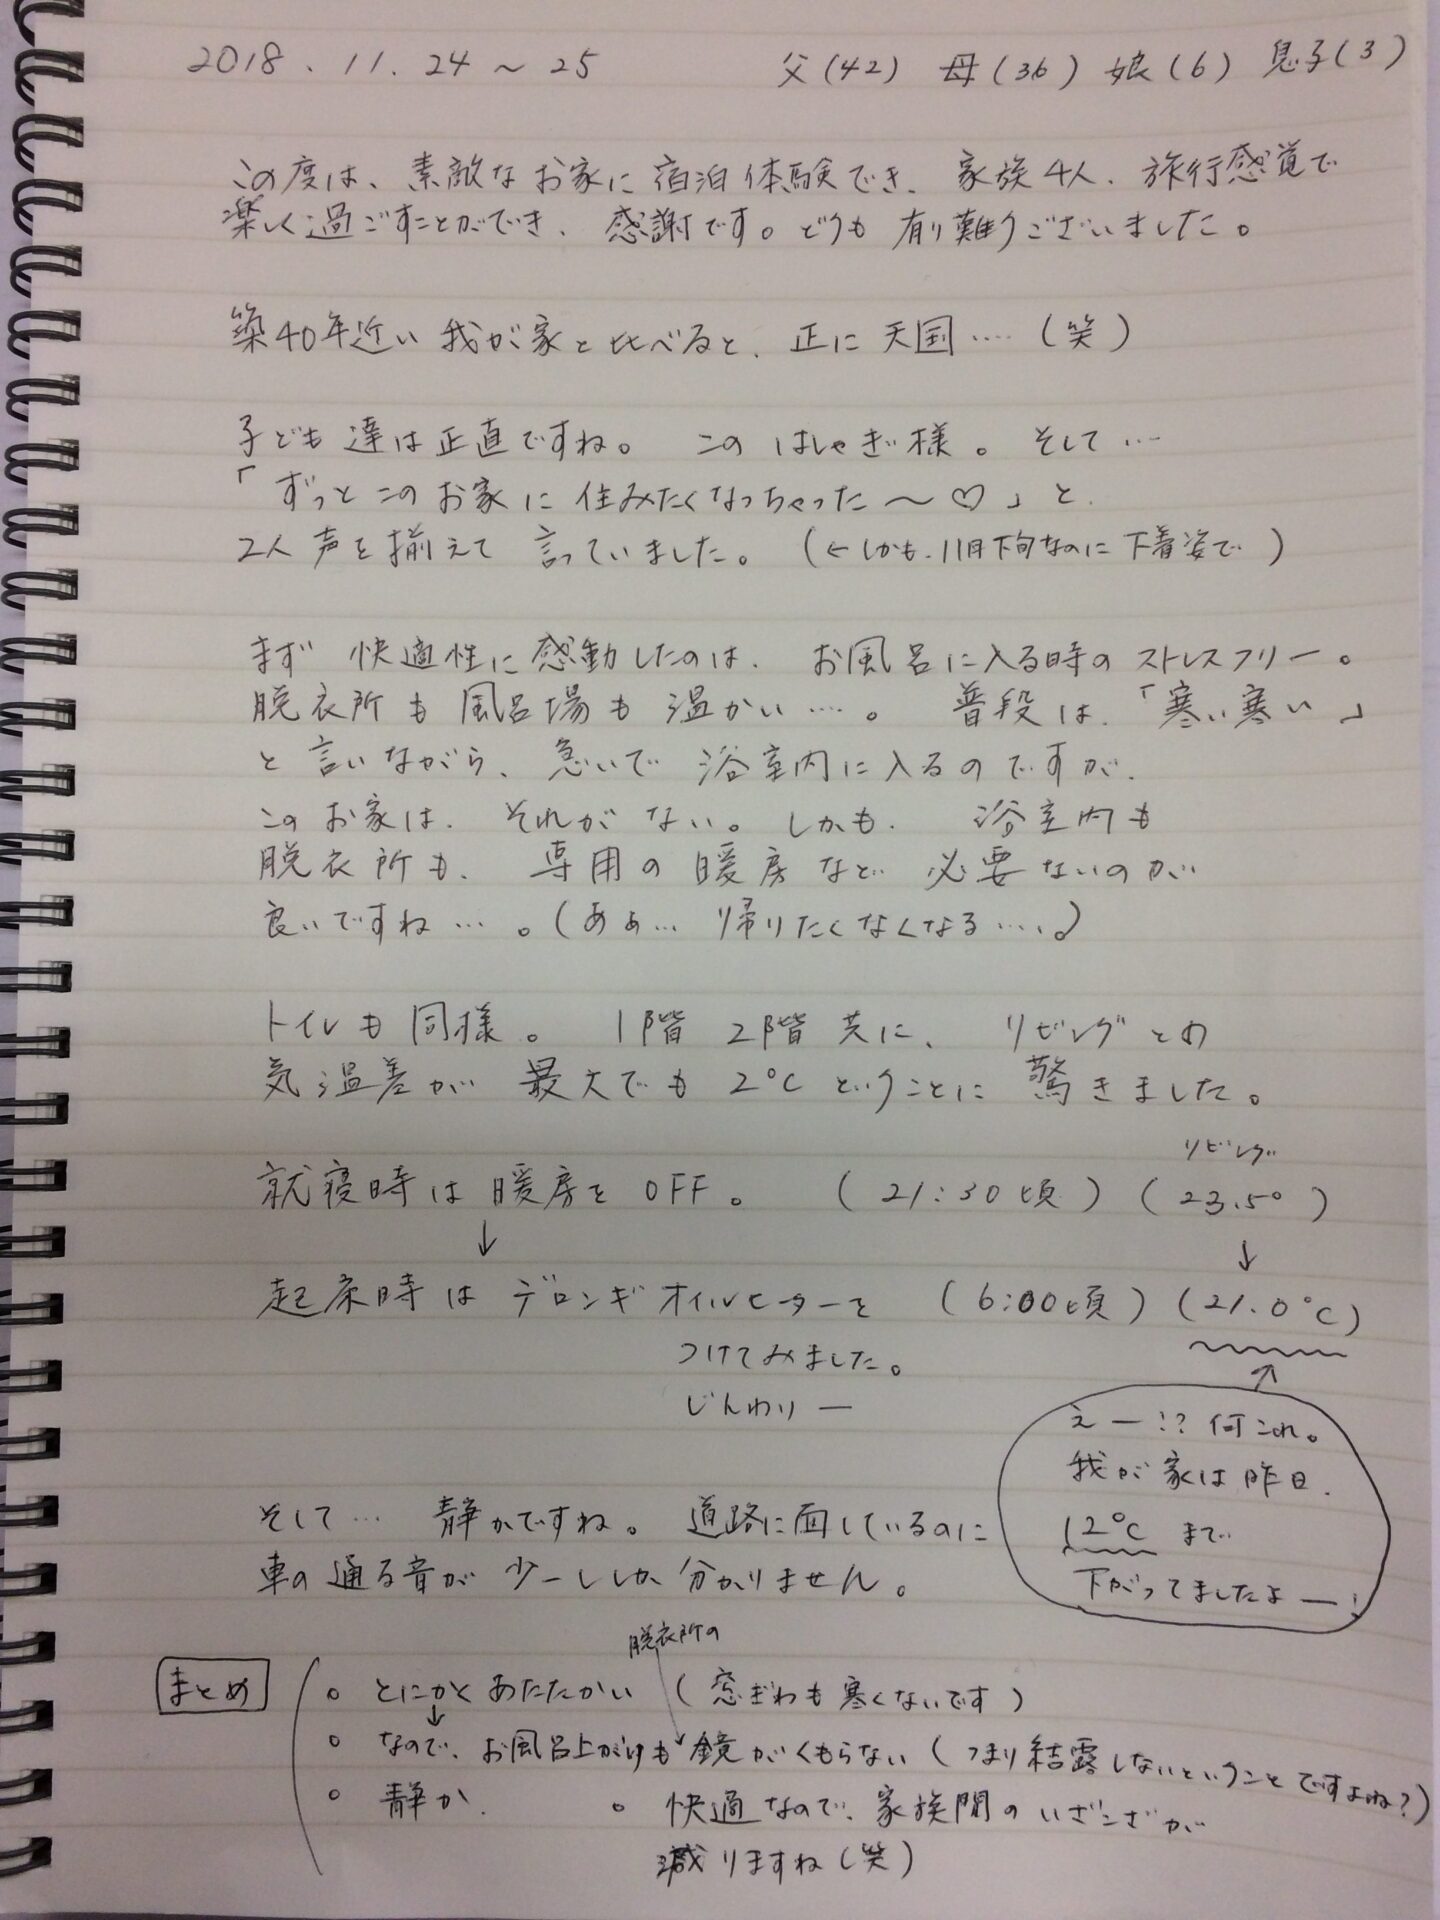 2018.11.24～25　父(42) 母(36) 娘(6) 息子(3)
この度は、素敵なお家に宿泊体験でき、家族4人、旅行感覚で
楽しく過ごすことができ、感謝です。どうも有り難うございました。
築40年近い我が家と比べると、正に天国….(笑)
子ども達は正直ですね。このはしゃぎ様。そして…
「ずっとこのお家に住みたくなっちゃった～♡」と、
2人声を揃えて言っていました。(←しかも、11月下旬なのに下着姿で)
まず快適性に感動したのは、お風呂に入る時のストレスフリー。
脱衣所も風呂場も温かい….。普段は、「寒い寒い」
と言いながら、急いで浴室内に入るのですが、
このお家は、それがない。しかも、浴室内も
脱衣所も、専用の暖房など必要ないのが
良いですね….。(あぁ…帰りたくなくなる….。)
トイレも同様。1階2階共に、リビングとの
気温差が最大でも2℃ということに驚きました。
リビング
就寝時は暖房をOFF。(21:30頃)(23.5°)
↓　↓
起床時はデロンギオイルヒーターを(6:00頃)(21.0℃)
つけてみました。
じんわりー
えー!?何これ。
我が家は昨日、
12℃まで
下がってましたよー!
そして…静かですね。道路に面しているのに
車の通る音が少ーししか分かりません。
脱衣所の
まとめ
○とにかくあたたかい(窓ぎわも寒くないです)
↓
○なので、お風呂上がりも鏡がくもらない(つまり結露しないということですよね?)
○静か、　○快適なので、家族間のいざこざが
減りますね(笑)